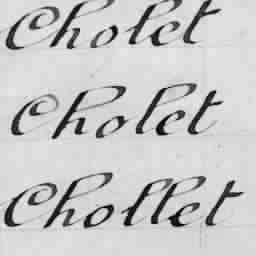 Cholet
Cholet
Chollet